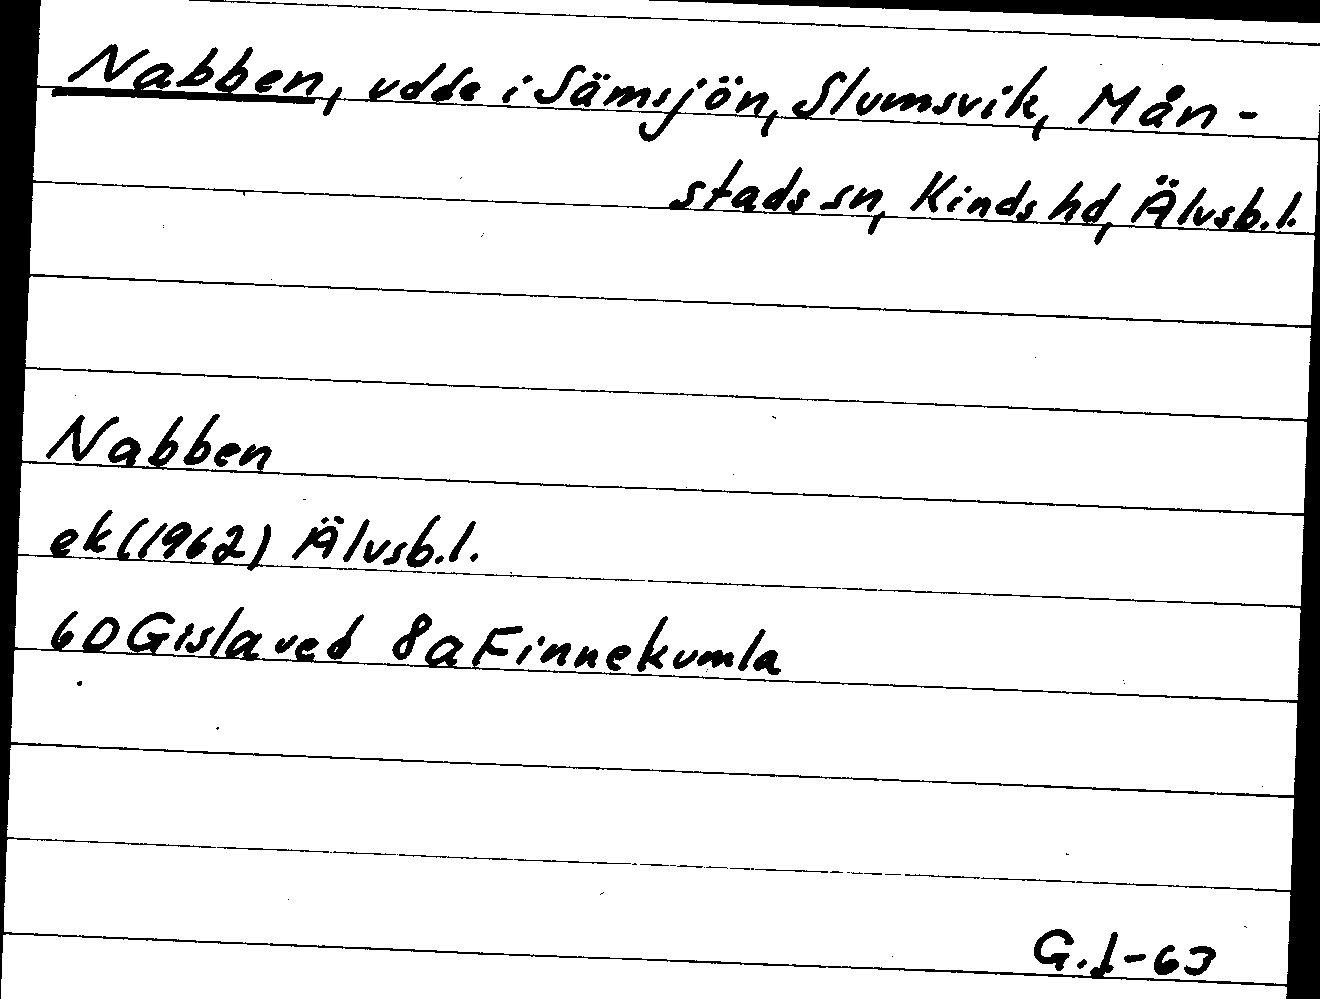 Nabben, udde i Sämsjön, Slumsvik, Mån-
stads sn, Kinds hd, Älvsb.l.
Nabben
ek (1962) Älvsb.l.
6D Gislaved 8a Finnekumla
G.J-63